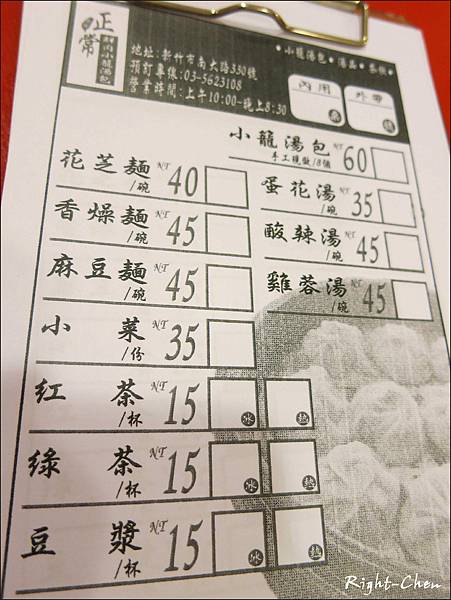 正常
鮮肉小籠湯包
•小籠湯包•湯品•茶飲•
地址:新竹市南大路330號
預訂專線:03-5623108
營業時間:上午10:00-晚上8:30
內用
桌
外帶
小籠湯包 NT 60
手工現做/8個
花芝麵 /碗 NT 40
蛋花湯 /碗 NT 35
香燥麵 /碗 NT 45
酸辣湯 /碗 NT 45
麻豆麵 /碗 NT 45
雞蓉湯 /碗 NT 45
小菜 /份 NT 35
紅茶 /杯 NT 15 冰 熱
綠茶 /杯 NT 15 冰 熱
豆漿 /杯 NT 15 冰 熱
Right-Chen